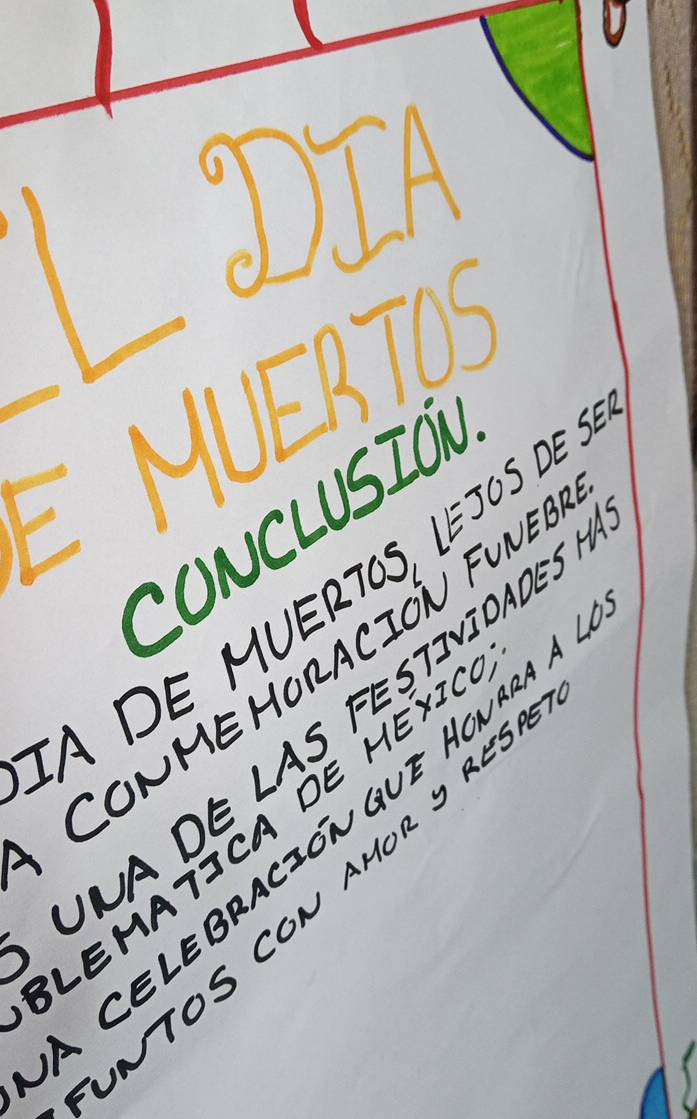 EL DIA
DE MUERTOS
CONCLUSIÓN.
DIA DE MUERTOS, LEJOS DE SER
A CONMEMORACIÓN FUNEBRE.
S UNA DE LAS FESTIVIDADES MAS
BLEMATICA DE MÉXICO;
UNA CELEBRACIÓN QUE HONRRA A LOS
IFUNTOS CON AMOR Y RESPETO